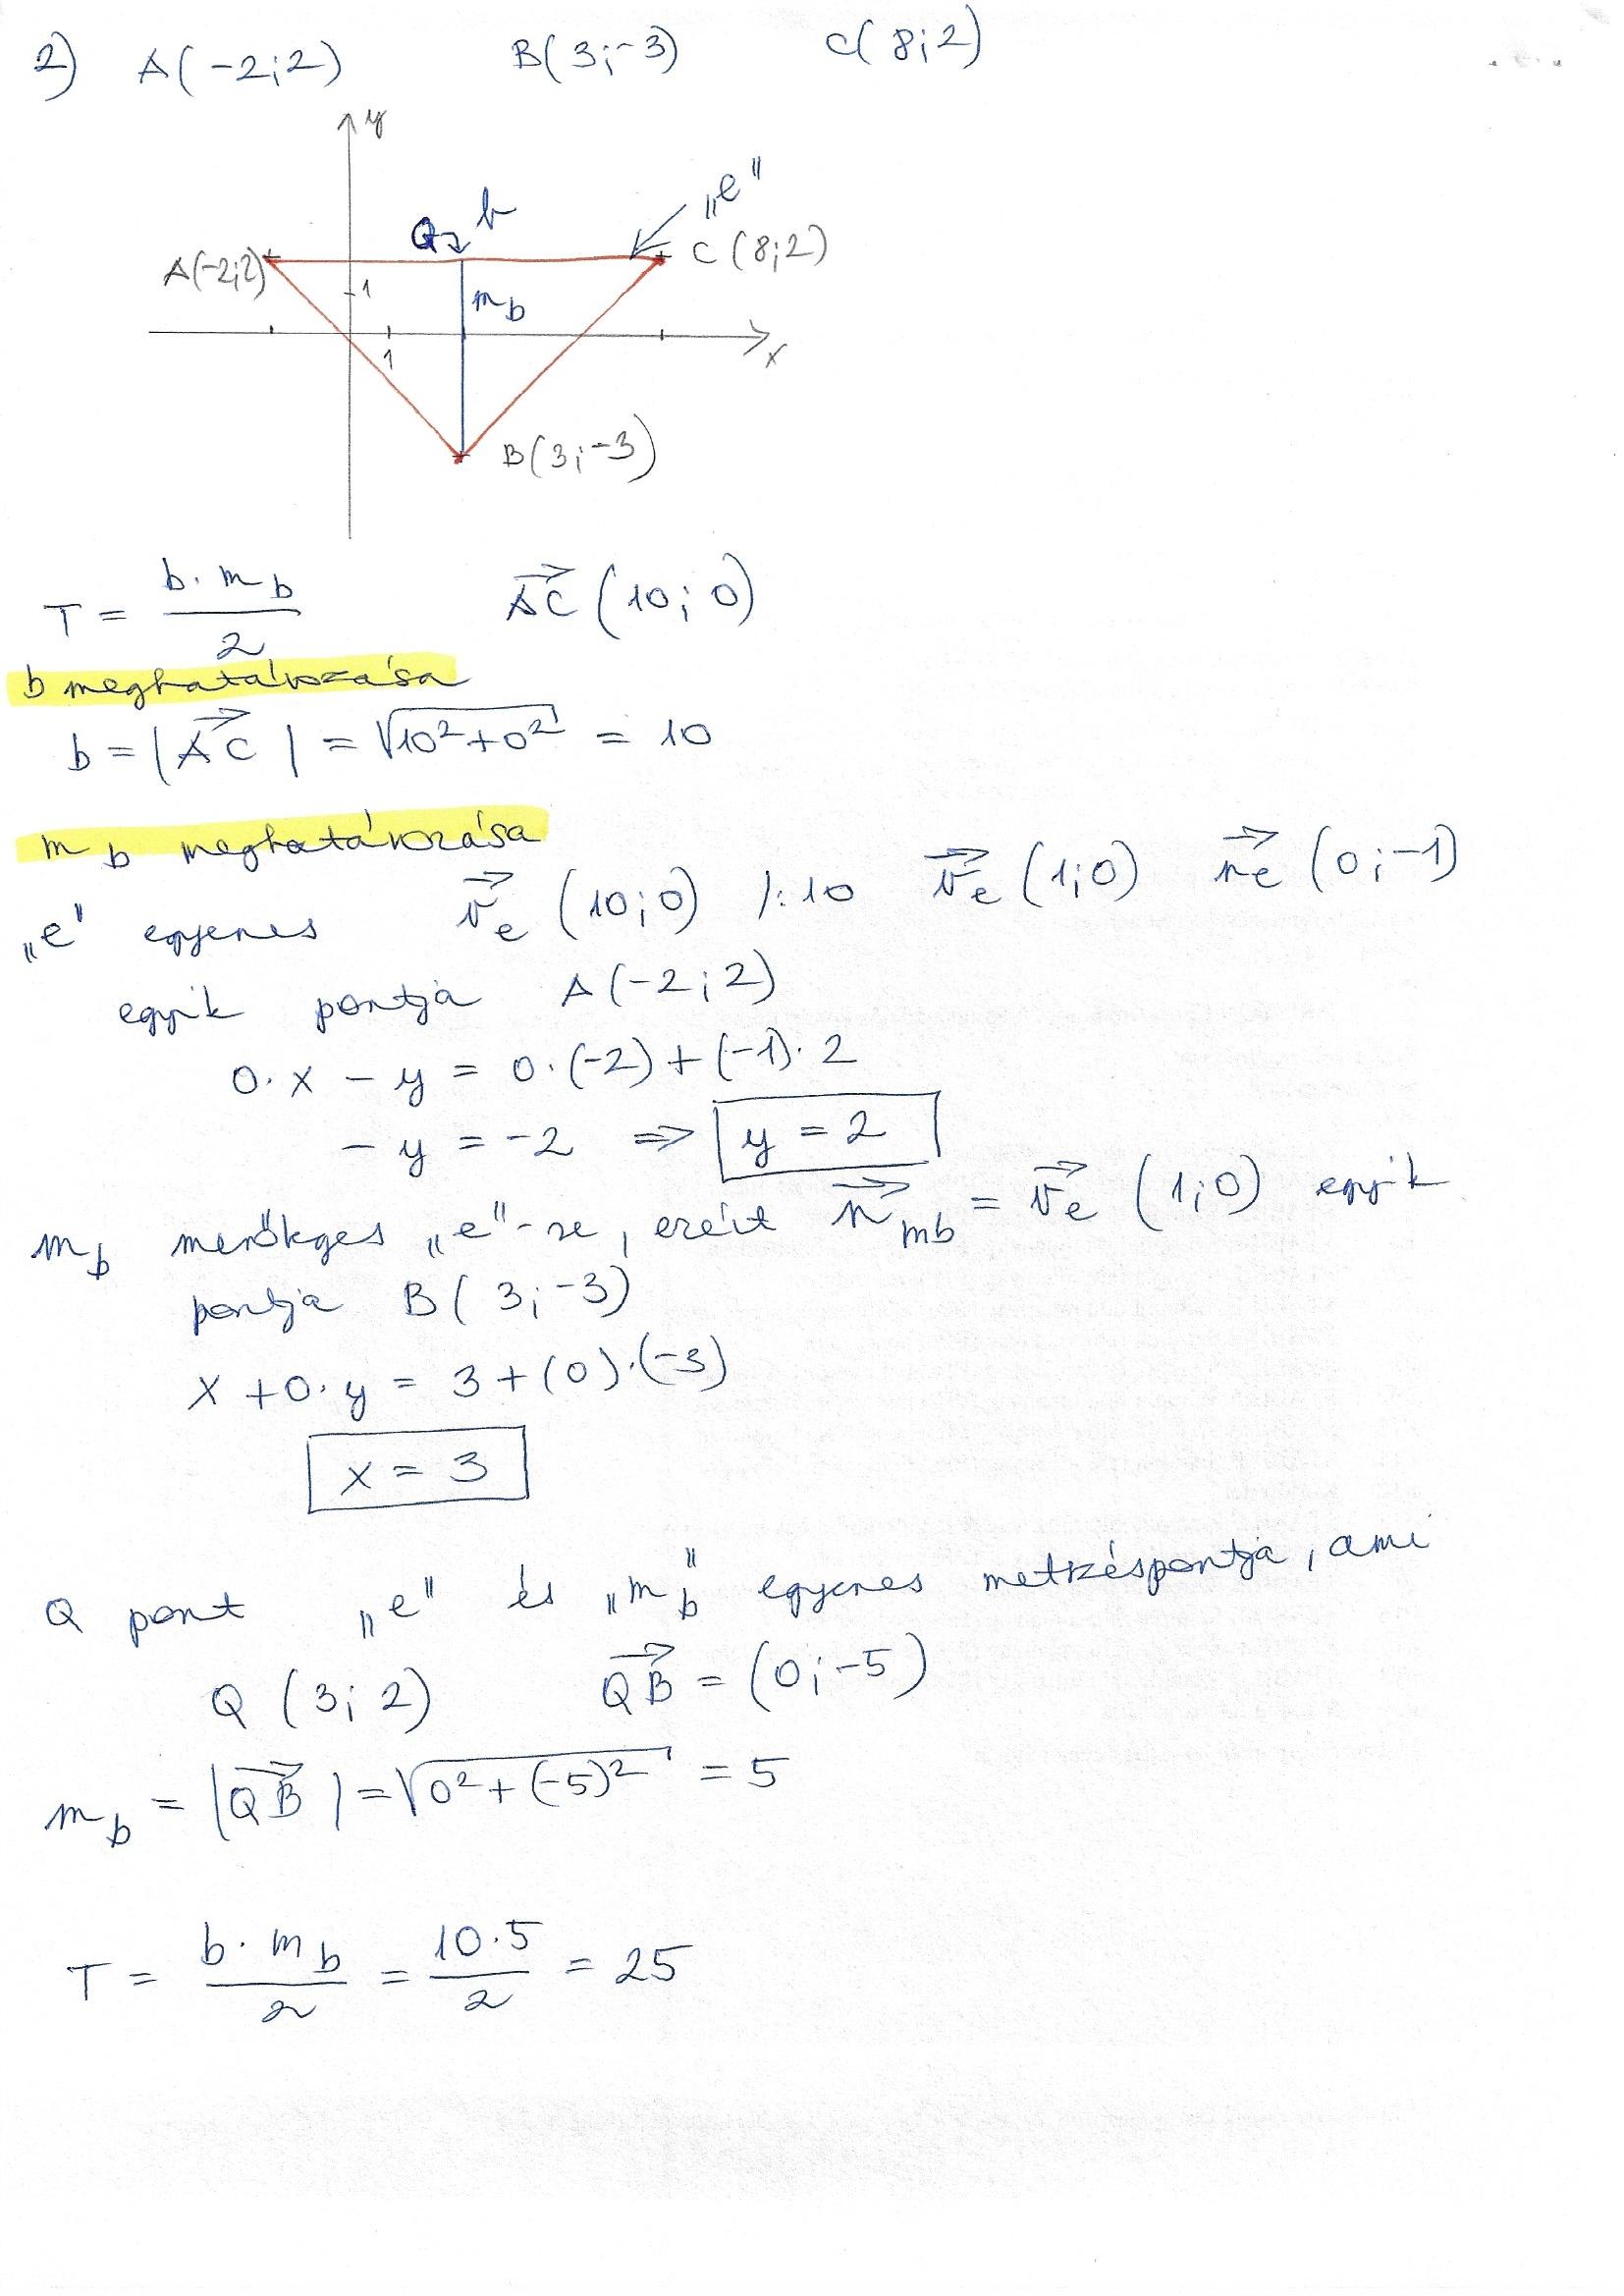 2) A(-2;2) B(3;-3) C(8;2)
y
Q b „e"
A(-2;2) C(8;2)
1 m_b
1 x
B(3;-3)
T = \frac{b·m_b}{2} \vec{AC} (10;0)
b meghatározása
b = |\vec{AC}| = √(10²+0²) = 10
m_b meghatározása
„e" egyenes \vec{v}_e (10;0) /:10 \vec{v}_e (1;0) \vec{n}_e (0;-1)
egyik pontja A(-2;2)
0·x - y = 0·(-2)+(-1)·2
-y = -2 ⇒ y = 2
m_b merőleges „e"-re, ezért \vec{n}_{mb} = \vec{v}_e (1;0) egyik
pontja B(3;-3)
x+0·y = 3+(0)·(-3)
x = 3
Q pont „e" és „m_b" egyenes metszéspontja, ami
Q (3;2) \vec{QB} = (0;-5)
m_b = |\vec{QB}| = √(0²+(-5)²) = 5
T = \frac{b·m_b}{2} = \frac{10·5}{2} = 25